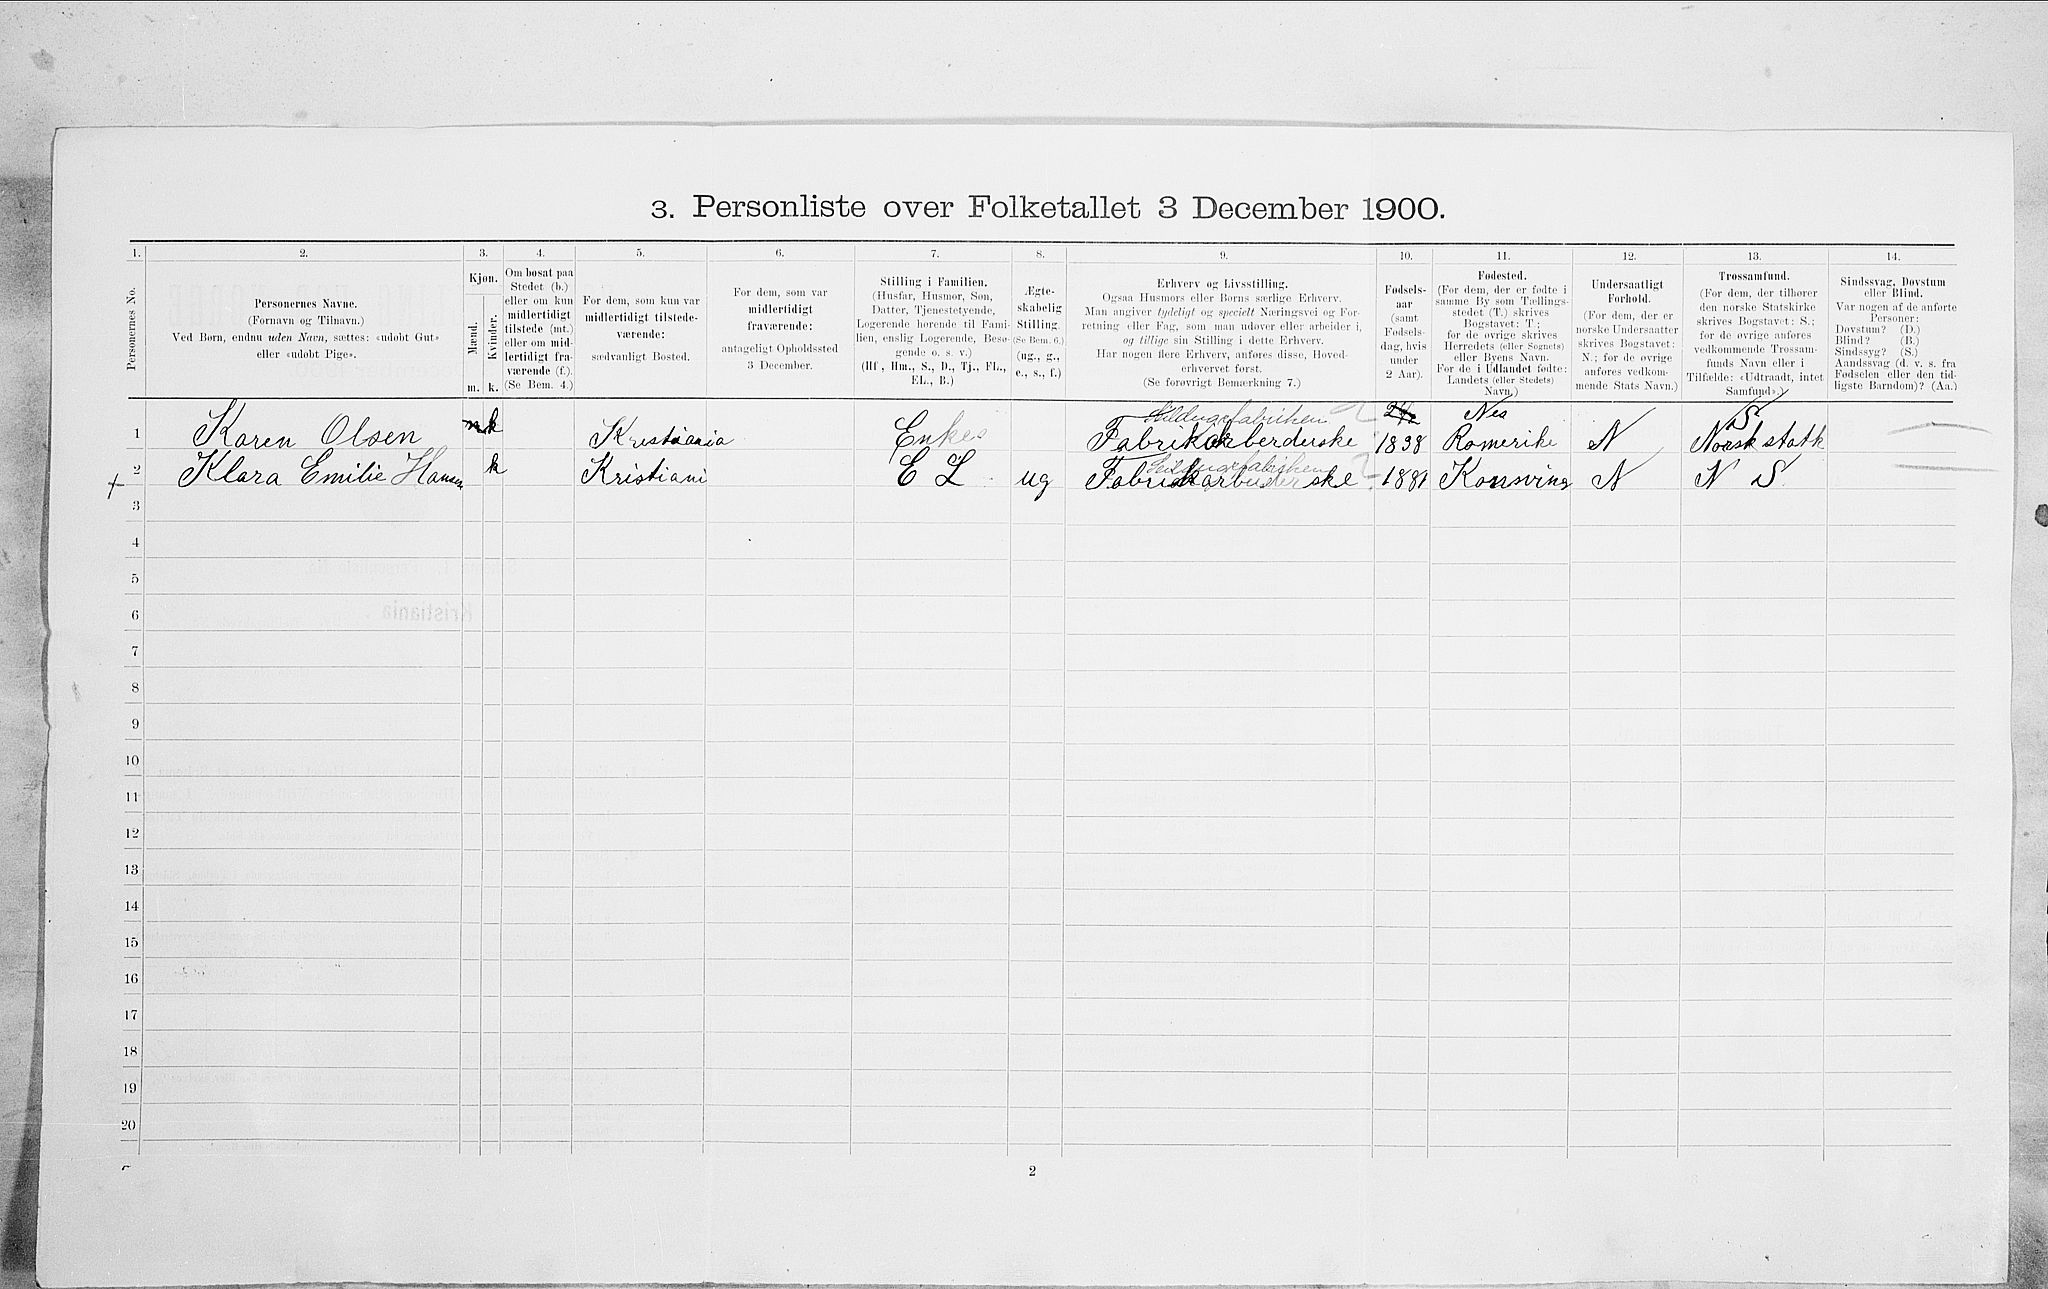 3. Personliste over Folketallet 3 December 1900.
1. 2. 3. 4. 5. 6. 7. 8. 9. 10. 11. 12. 13. 14.
Personernes No.
Personernes Navne.
(Fornavn og Tilnavn.)
Ved Børn, endnu uden Navn, sættes: «udøbt Gut»
eller «udøbt Pige».
Kjøn.
Mænd.
Kvinder.
m. k.
Om bosat paa
Stedet (b.)
eller om kun
midlertidigt
tilstede (mt.)
eller om mid-
lertidigt fra-
værende (f.).
(Se Bem. 4.)
For dem, som kun var
midlertidigt tilstede-
værende:
sædvanligt Bosted.
For dem, som var
midlertidigt
fraværende:
antageligt Opholdssted
3 December.
Stilling i Familien.
(Husfar, Husmor, Søn,
Datter, Tjenestetyende,
Logerende hørende til Fami-
lien, enslig Logerende, Besø-
gende o. s. v.)
(Hf., Hm., S., D., Tj., FL.,
EL., B.)
Ægte-
skabelig
Stilling.
(Se Bem. 6.)
(ug., g.,
e., s., f.)
Erhverv og Livsstilling.
Ogsaa Husmors eller Børns særlige Erhverv.
Man angiver tydeligt og specielt Næringsvei og For-
retning eller Fag, som man udøver eller arbeider i,
og tillige sin Stilling i dette Erhverv.
Har nogen flere Erhverv, anføres disse, Hoved-
erhvervet først.
(Se forøvrigt Bemerkning 7.)
Fødsels-
aar
(samt
Fødsels-
dag, hvis
under
2 Aar).
Fødested.
(For dem, der er fødte i
samme By som Tællings-
stedet (T.) skrives
Bogstavet: T;
for de øvrige skrives
Herredets (eller Sognets)
eller Byens Navn.
For de i Udlandet fødte:
Landets (eller Stedets)
Navn.)
Undersaatligt
Forhold.
(For dem, der er
norske Undersaatter
skrives Bogstavet:
N.; for de øvrige
anføres vedkom-
mende Stats Navn.)
Trossamfund.
(For dem, der tilhører
den norske Statskirke
skrives Bogstavet: S.;
for de øvrige anføres
vedkommende Trossam-
funds Navn eller i
Tilfælde: «Udtraadt, intet
Samfund».)
Sindssvag, Døvstum
eller Blind.
Var nogen af de anførte
Personer:
Døvstum? (D.)
Blind? (B.)
Sindssyg? (S.)
Aandssvag (d. v. s. fra
Fødselen eller den tid-
ligste Barndom)? (Aa.)
Nes S
1 Karen Olsen k Kristiania Enke Fabrikarberderske 1838 Romerike N Norsk statk
2 Klara Emilie Hansen k Kristiani E L ug Fabrikarbeiderske 1881 Konsving N N S
3
4
5
6
7
8
9
10
11
12
13
14
15
16
17
18
19
20
2